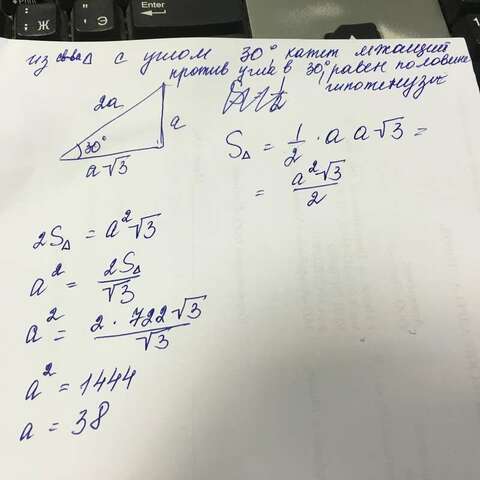 Enter
Ж
Э
из св-ва Δ с углом 30° катет лежащий
против угла в 30° равен половине
гипотенузы
2a
a
30°
a√3
S△ = 1/2 · a a√3 =
= a²√3/2
2S△ = a²√3
a² = 2S△/√3
a² = 2 · 722√3/√3
a² = 1444
a = 38